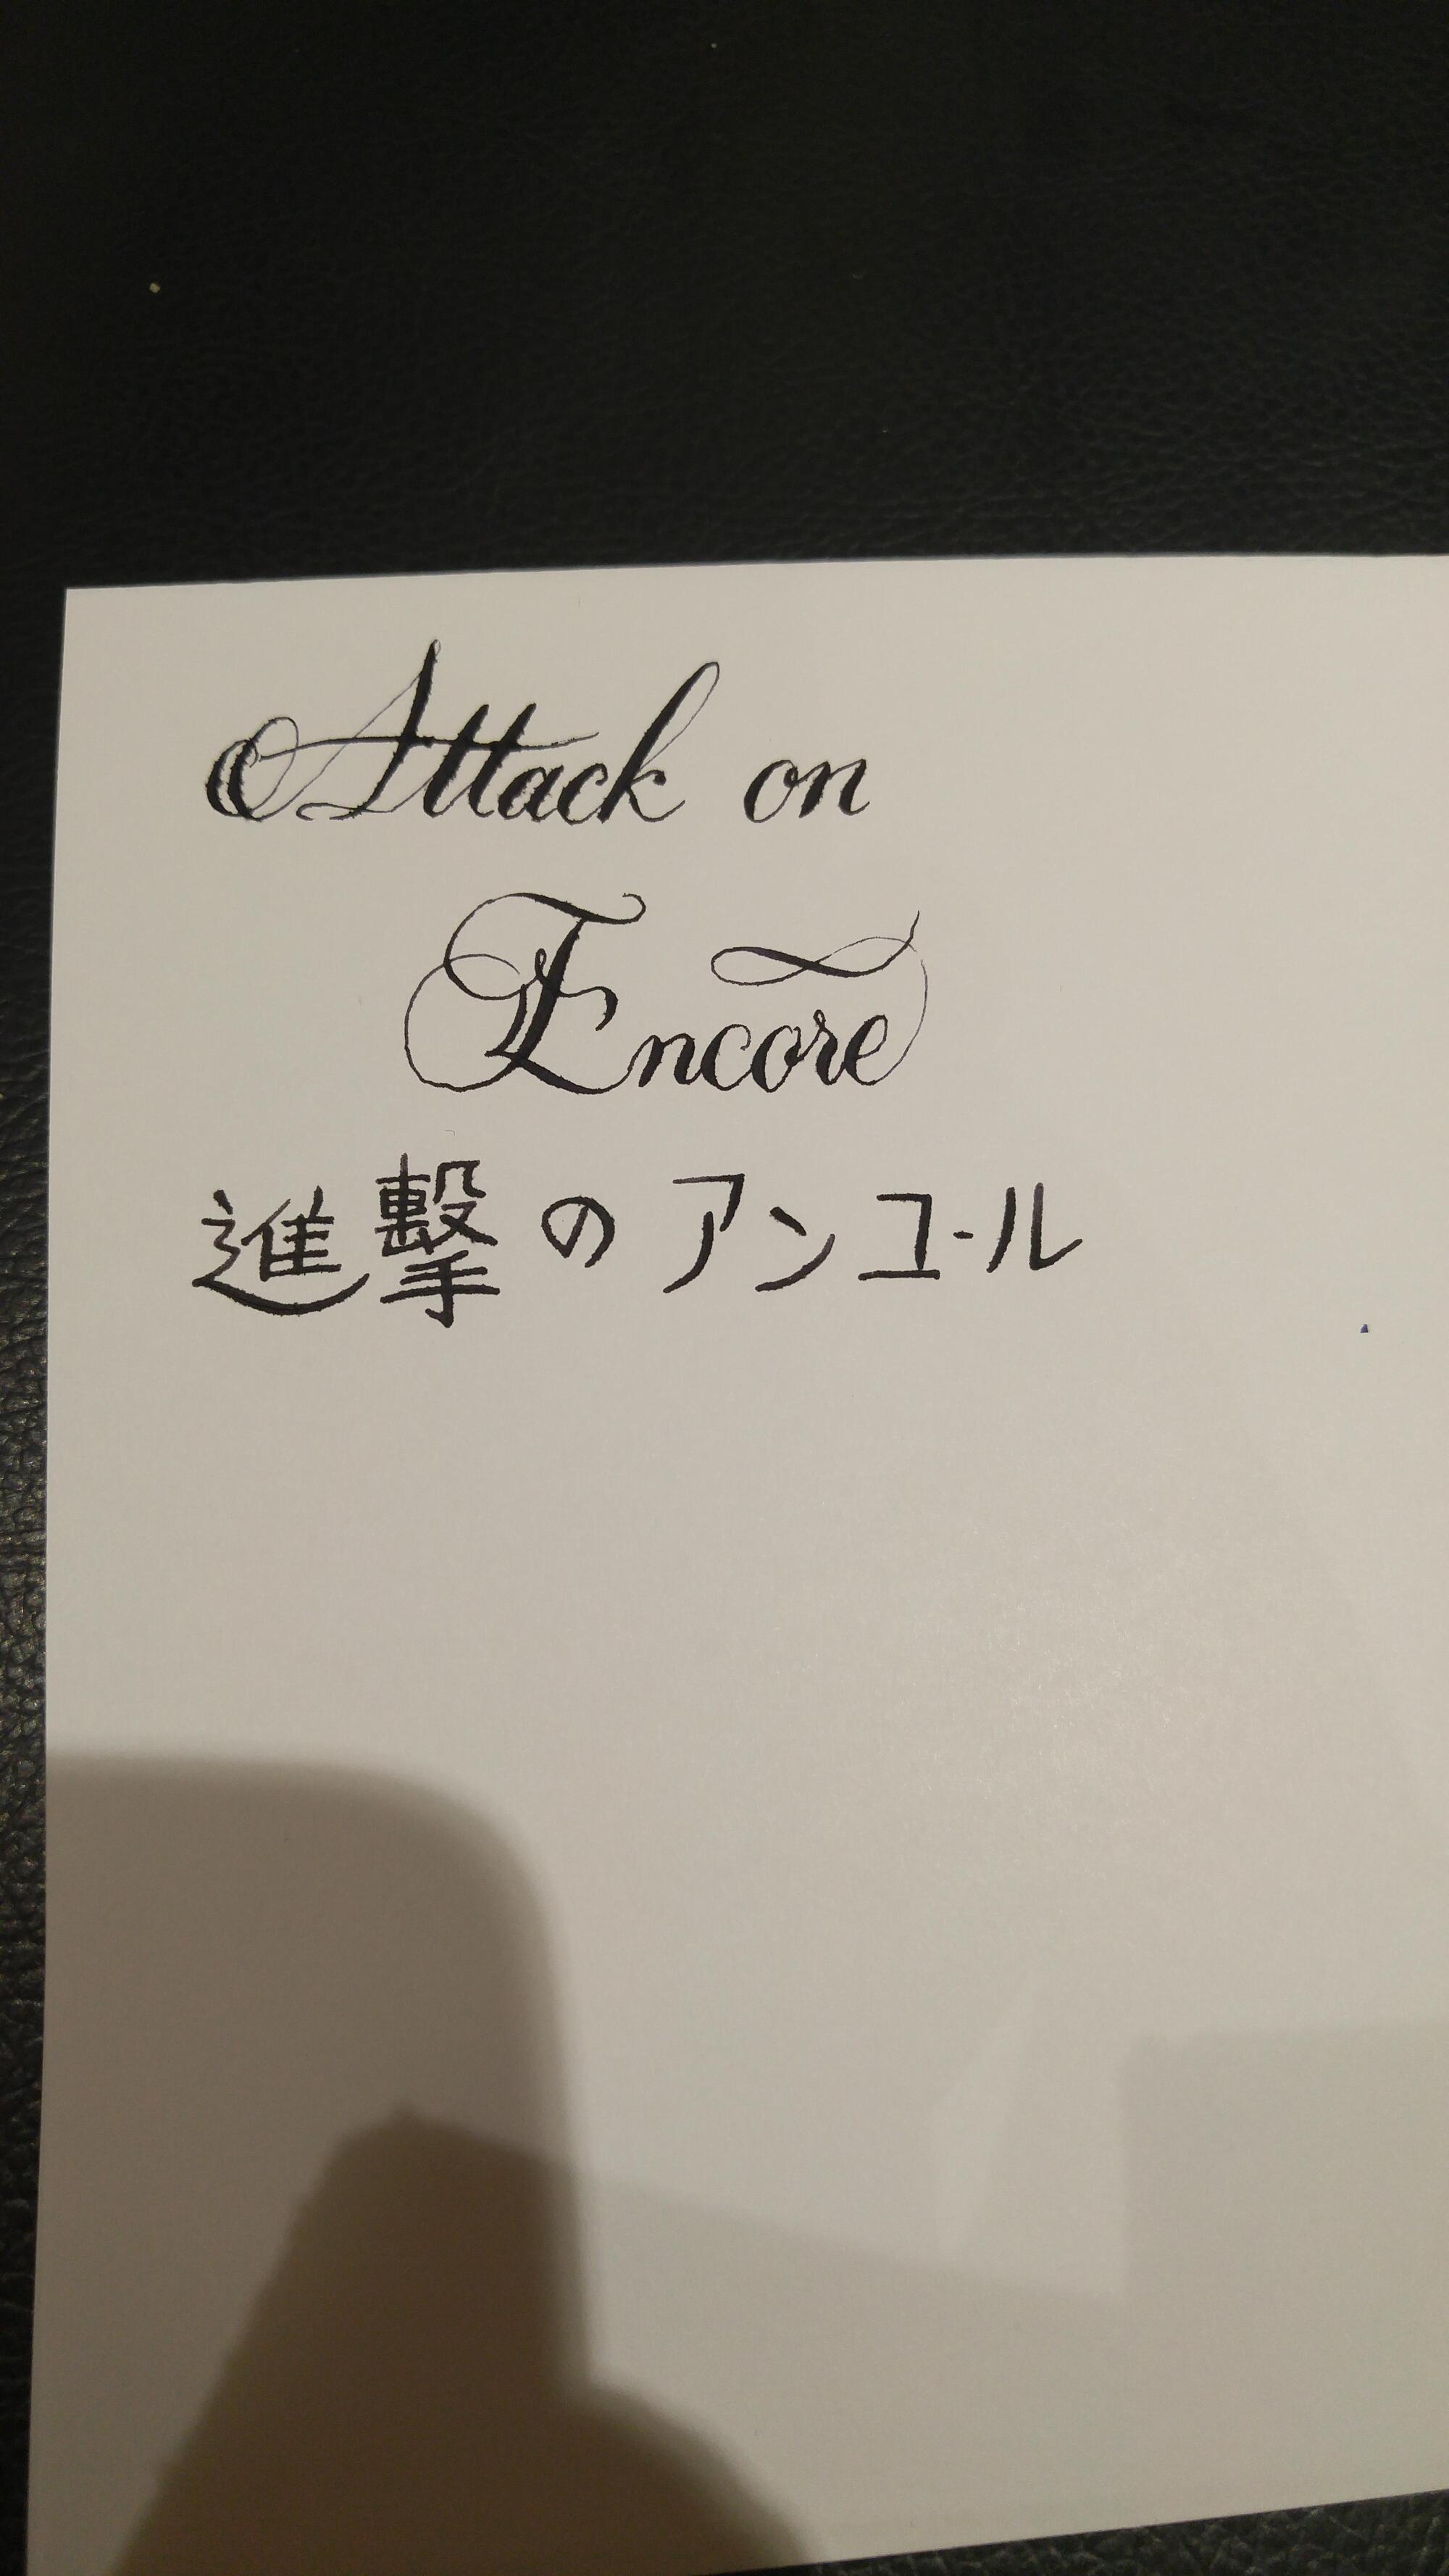 Attack on
Encore
進撃のアンユール